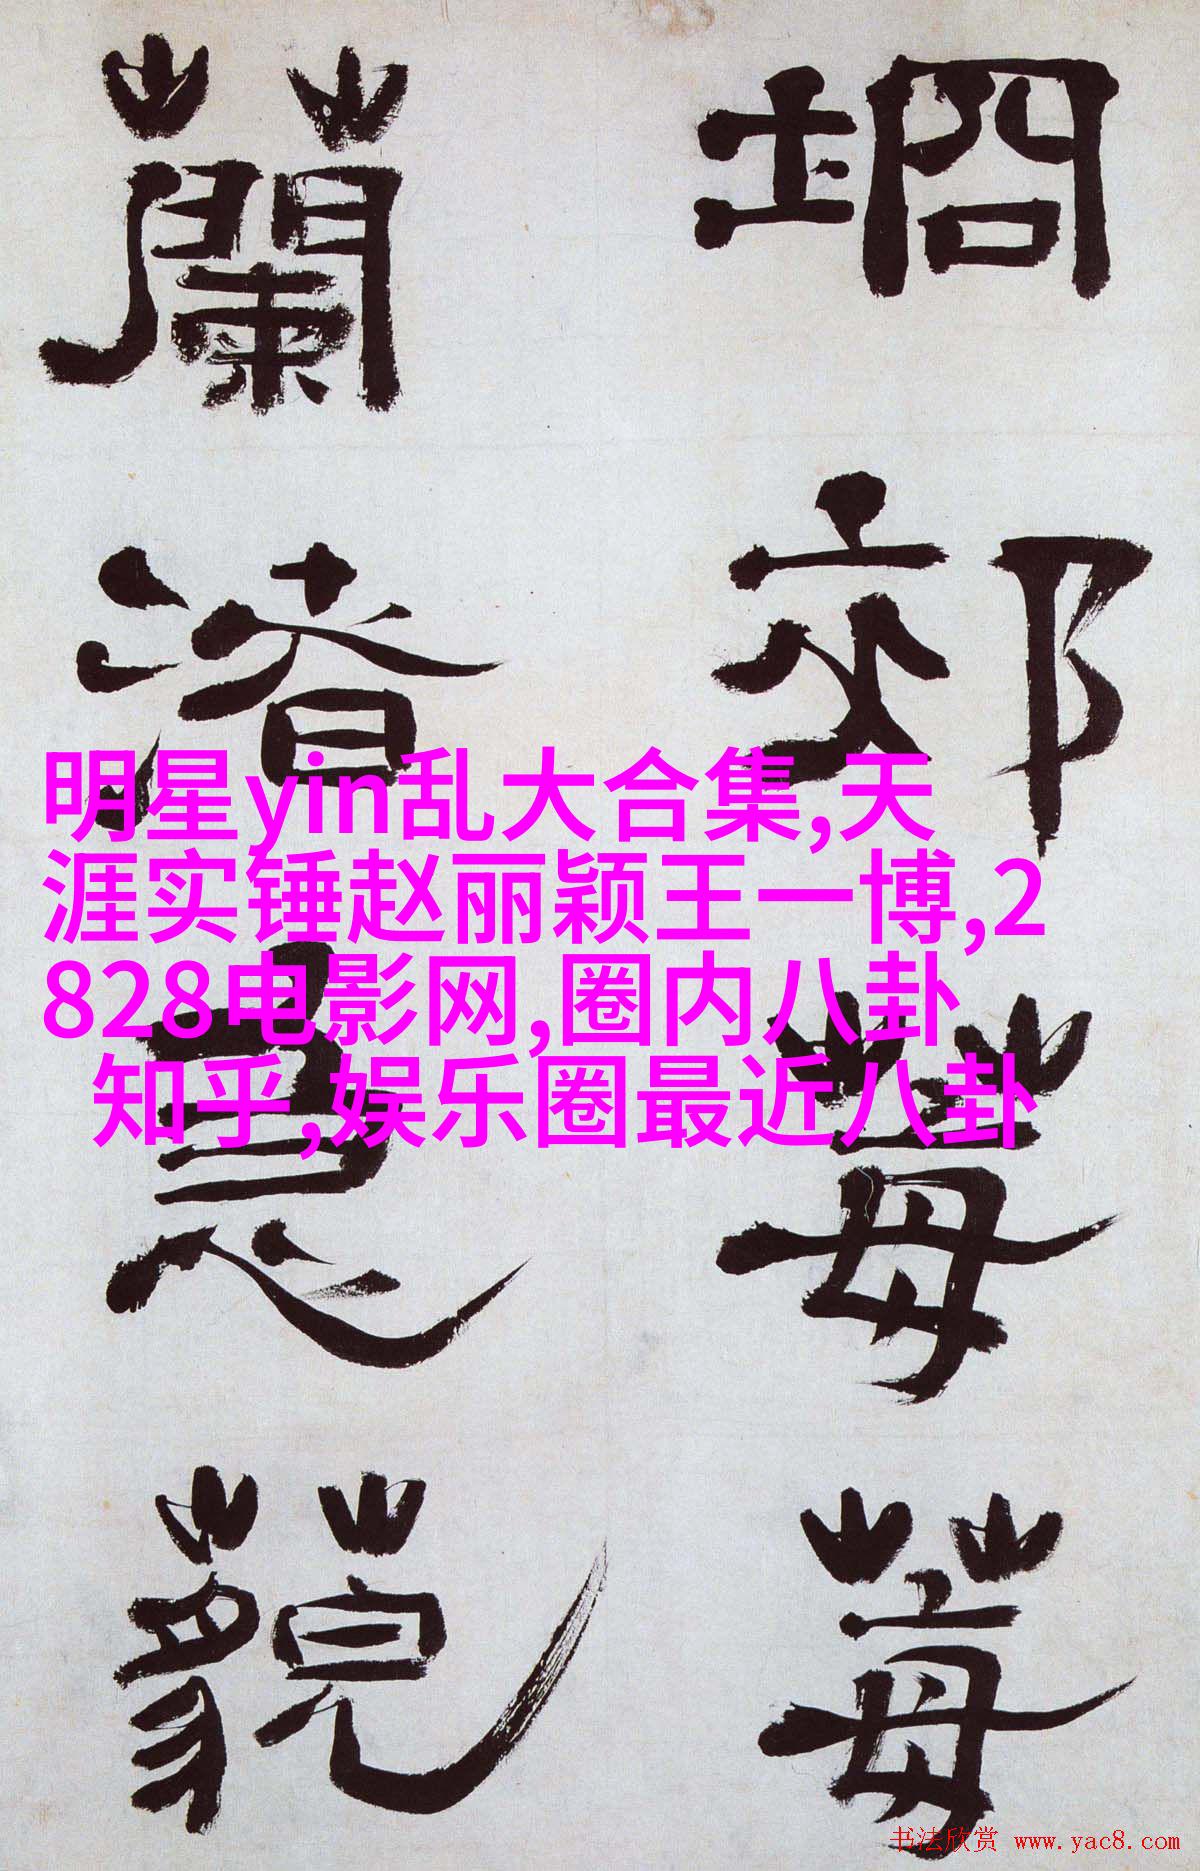 坰郊莓莓
蘭渚藐
明星yin乱大合集,天
涯实锤赵丽颖王一博,2
828电影网,圈内八卦
知乎,娱乐圈最近八卦
书法欣赏 www.yac8.com